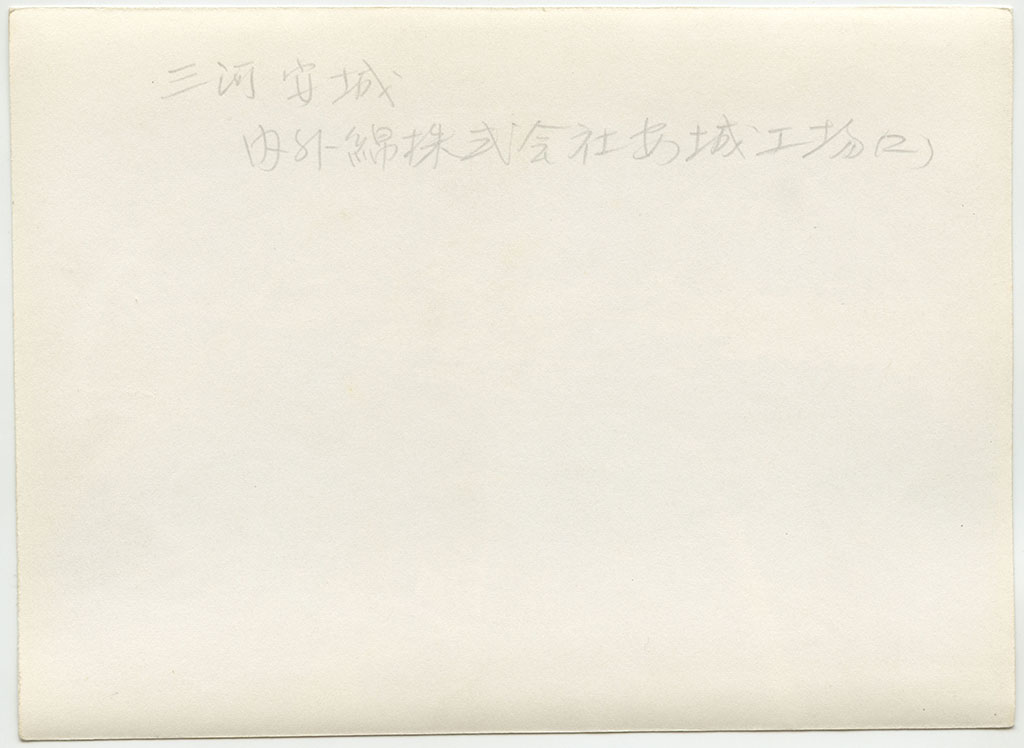 三河安城
内外綿株式会社安城工場(2)